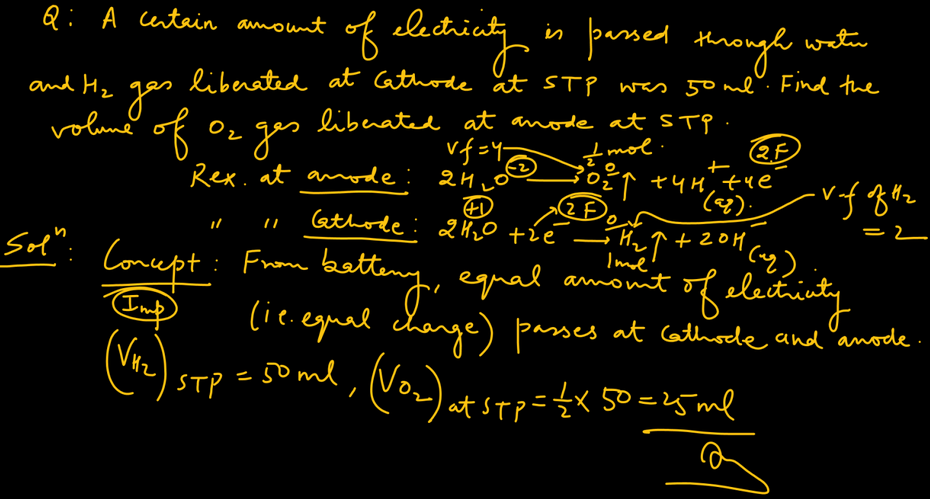 Q: A certain amount of electricity is passed through water
and H₂ gas liberated at Cathode at STP was 50 ml. Find the
volume of O₂ gas liberated at anode at STP.
vf = 4 ½ mol. 2F
Rex. at anode: 2H₂O⁻² → O₂⁰ ↑ + 4H⁺(aq). + 4e⁻
" " Cathode: 2H₂O + 2e⁻ → H₂ ↑ + 2OH⁻(aq)
+1 2F 0 1mol
v f of H₂
= 2
Solⁿ: Concept: From battery, equal amount of electricity
Imp (i.e. equal charge) passes at Cathode and anode.
(V_H₂) STP = 50 ml, (V_O₂) at STP = ½ × 50 = 25 ml